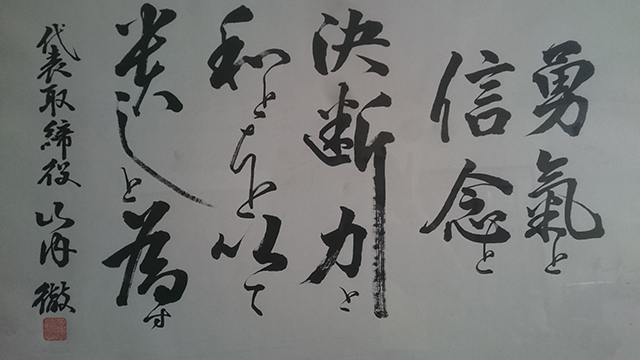 勇氣と
信念と
決断力と
和とを以て
貴しと為す
代表取締役 山 徹